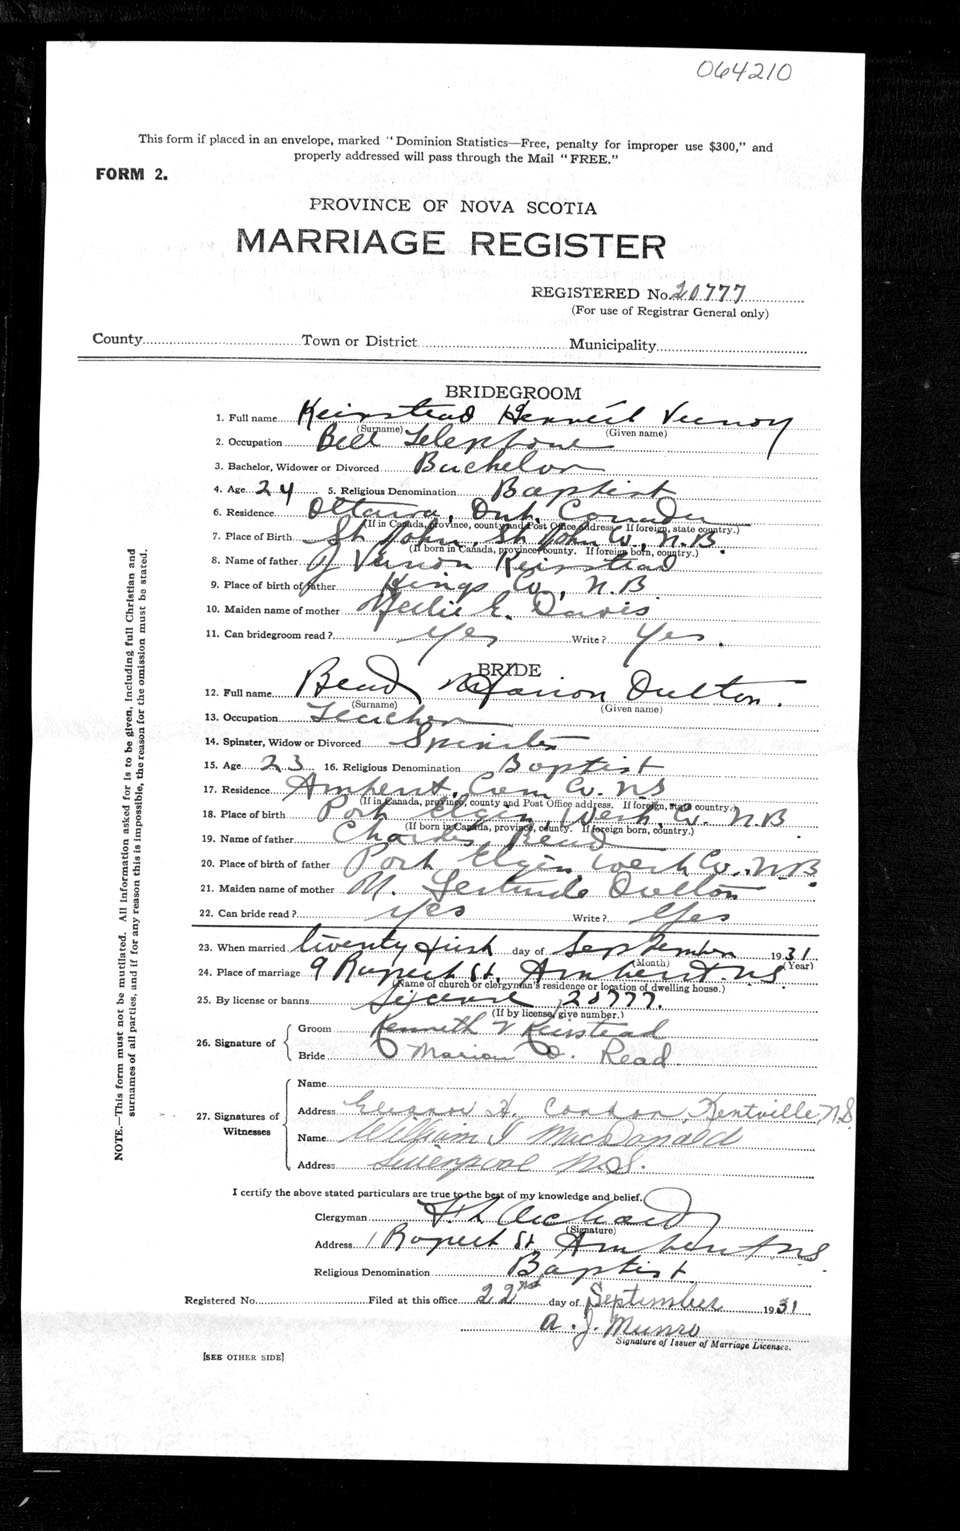 064210
This form if placed in an envelope, marked "Dominion Statistics—Free, penalty for improper use $300," and
properly addressed will pass through the Mail "FREE."
FORM 2.
PROVINCE OF NOVA SCOTIA
MARRIAGE REGISTER
REGISTERED No. 20777
(For use of Registrar General only)
County Town or District Municipality
BRIDEGROOM
1. Full name Keirstead Vernon
(Surname) (Given name)
2. Occupation Bell Telephone
3. Bachelor, Widower or Divorced Bachelor
4. Age 24 5. Religious Denomination Baptist
6. Residence Ottawa, Ont. Canada
(If in Canada, province, county and Post Office address. If foreign, state country.)
7. Place of Birth St John, St John Co, N.B.
(If born in Canada, province, county. If foreign born, country.)
8. Name of father J Vernon Keirstead
9. Place of birth of father Kings Co, N.B
10. Maiden name of mother Nellie E. Davis
11. Can bridegroom read? Yes Write? Yes.
BRIDE
12. Full name Read Marion Oulton.
(Surname) (Given name)
13. Occupation Teacher
14. Spinster, Widow or Divorced Spinster
15. Age 23 16. Religious Denomination Baptist
17. Residence Amherst, Cum Co. NS
(If in Canada, province, county and Post Office address. If foreign, state country.)
18. Place of birth Port Elgin, West. Co. N.B
(If born in Canada, province, county. If foreign born, country.)
19. Name of father Charles Read
20. Place of birth of father Port Elgin West Co., N.B
21. Maiden name of mother M. Gertrude Oulton
22. Can bride read? Yes Write? Yes
23. When married twenty first day of September 1931
(Month) (Year)
24. Place of marriage 9 Rupert St. Amherst NS.
(Name of church or clergyman's residence or location of dwelling house.)
25. By license or banns License 20777.
(If by license, give number.)
26. Signature of
Groom Kenneth V Keirstead
Bride Marion O. Read
27. Signatures of
Witnesses
Name
Address Eleanor H. Condon, Kentville, N.S.
Name William J MacDonald
Address Liverpool N.S.
I certify the above stated particulars are true to the best of my knowledge and belief.
Clergyman
(Signature)
Address Rupert St. Amherst NS
Religious Denomination Baptist
Registered No. Filed at this office 22nd day of September 1931
A. J. Munro
Signature of Issuer of Marriage Licenses.
[SEE OTHER SIDE]
NOTE.—This form must not be mutilated. All information asked for is to be given, including full Christian and
surnames of all parties, and if for any reason this is impossible, the reason for the omission must be stated.